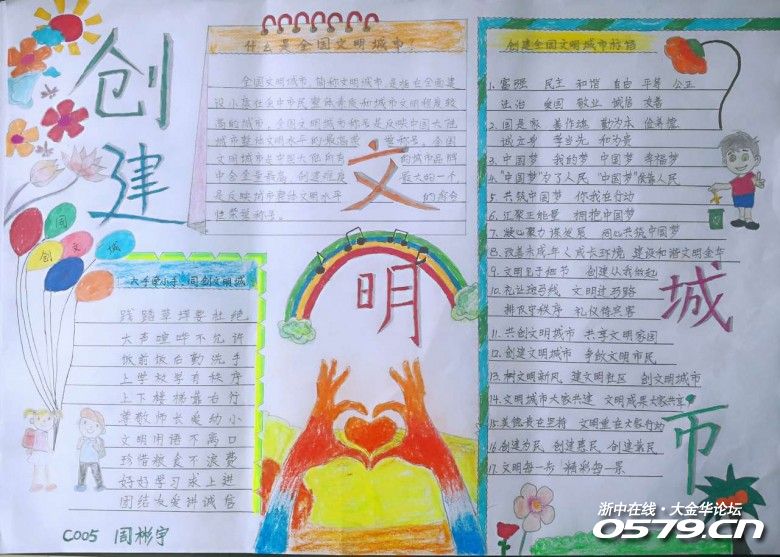 创建
文明
城市
什么是全国文明城市?
全国文明城市,简称文明城市,是指在全面建
设小康社会中市民整体素质和城市文明程度较
高的城市。全国文明城市称号是反映中国大陆
城市整体文明水平的最高荣誉称号。全国
文明城市是中国大陆所有的城市品牌
中含金量最高、创建难度最大的一个,
是反映城市整体文明水平的综合
性荣誉称号。
创建全国文明城市标语
1、富强 民主 和谐 自由 平等 公正
法治 爱国 敬业 诚信 友善
2、国是家 善作魂 勤为本 俭养德
诚立身 孝当先 和为贵
3、中国梦 我的梦 中国梦 幸福梦
4、“中国梦”为了人民 “中国梦”依靠人民
5、共筑中国梦 你我在行动
6、汇聚正能量 拥抱中国梦
7、凝心聚力谋发展 同心共筑中国梦
8、改善未成年人成长环境 建设和谐文明金华
9、文明见于细节 创建从我做起
10、礼让斑马线 文明过马路
排队守秩序 礼仪待宾客
11、共创文明城市 共享文明家园
12、创建文明城市 争做文明市民
13、树文明新风 建文明社区 创文明城市
14、文明城市大家共建 文明成果大家共享
15、美德贵在坚持 文明重在大家行动
16、创建为民 创建惠民 创建靠民
17、文明每一步 精彩每一景
同
创 文 城
大手牵小手,同创文明城
践踏草坪要杜绝
大声喧哗不允许
饭前饭后勤洗手
上学放学有秩序
上下楼梯靠右行
尊敬师长爱幼小
文明用语不离口
珍惜粮食不浪费
好好学习求上进
团结友爱讲诚信
C005 周彬宇
浙中在线·大金华论坛
0579.cn